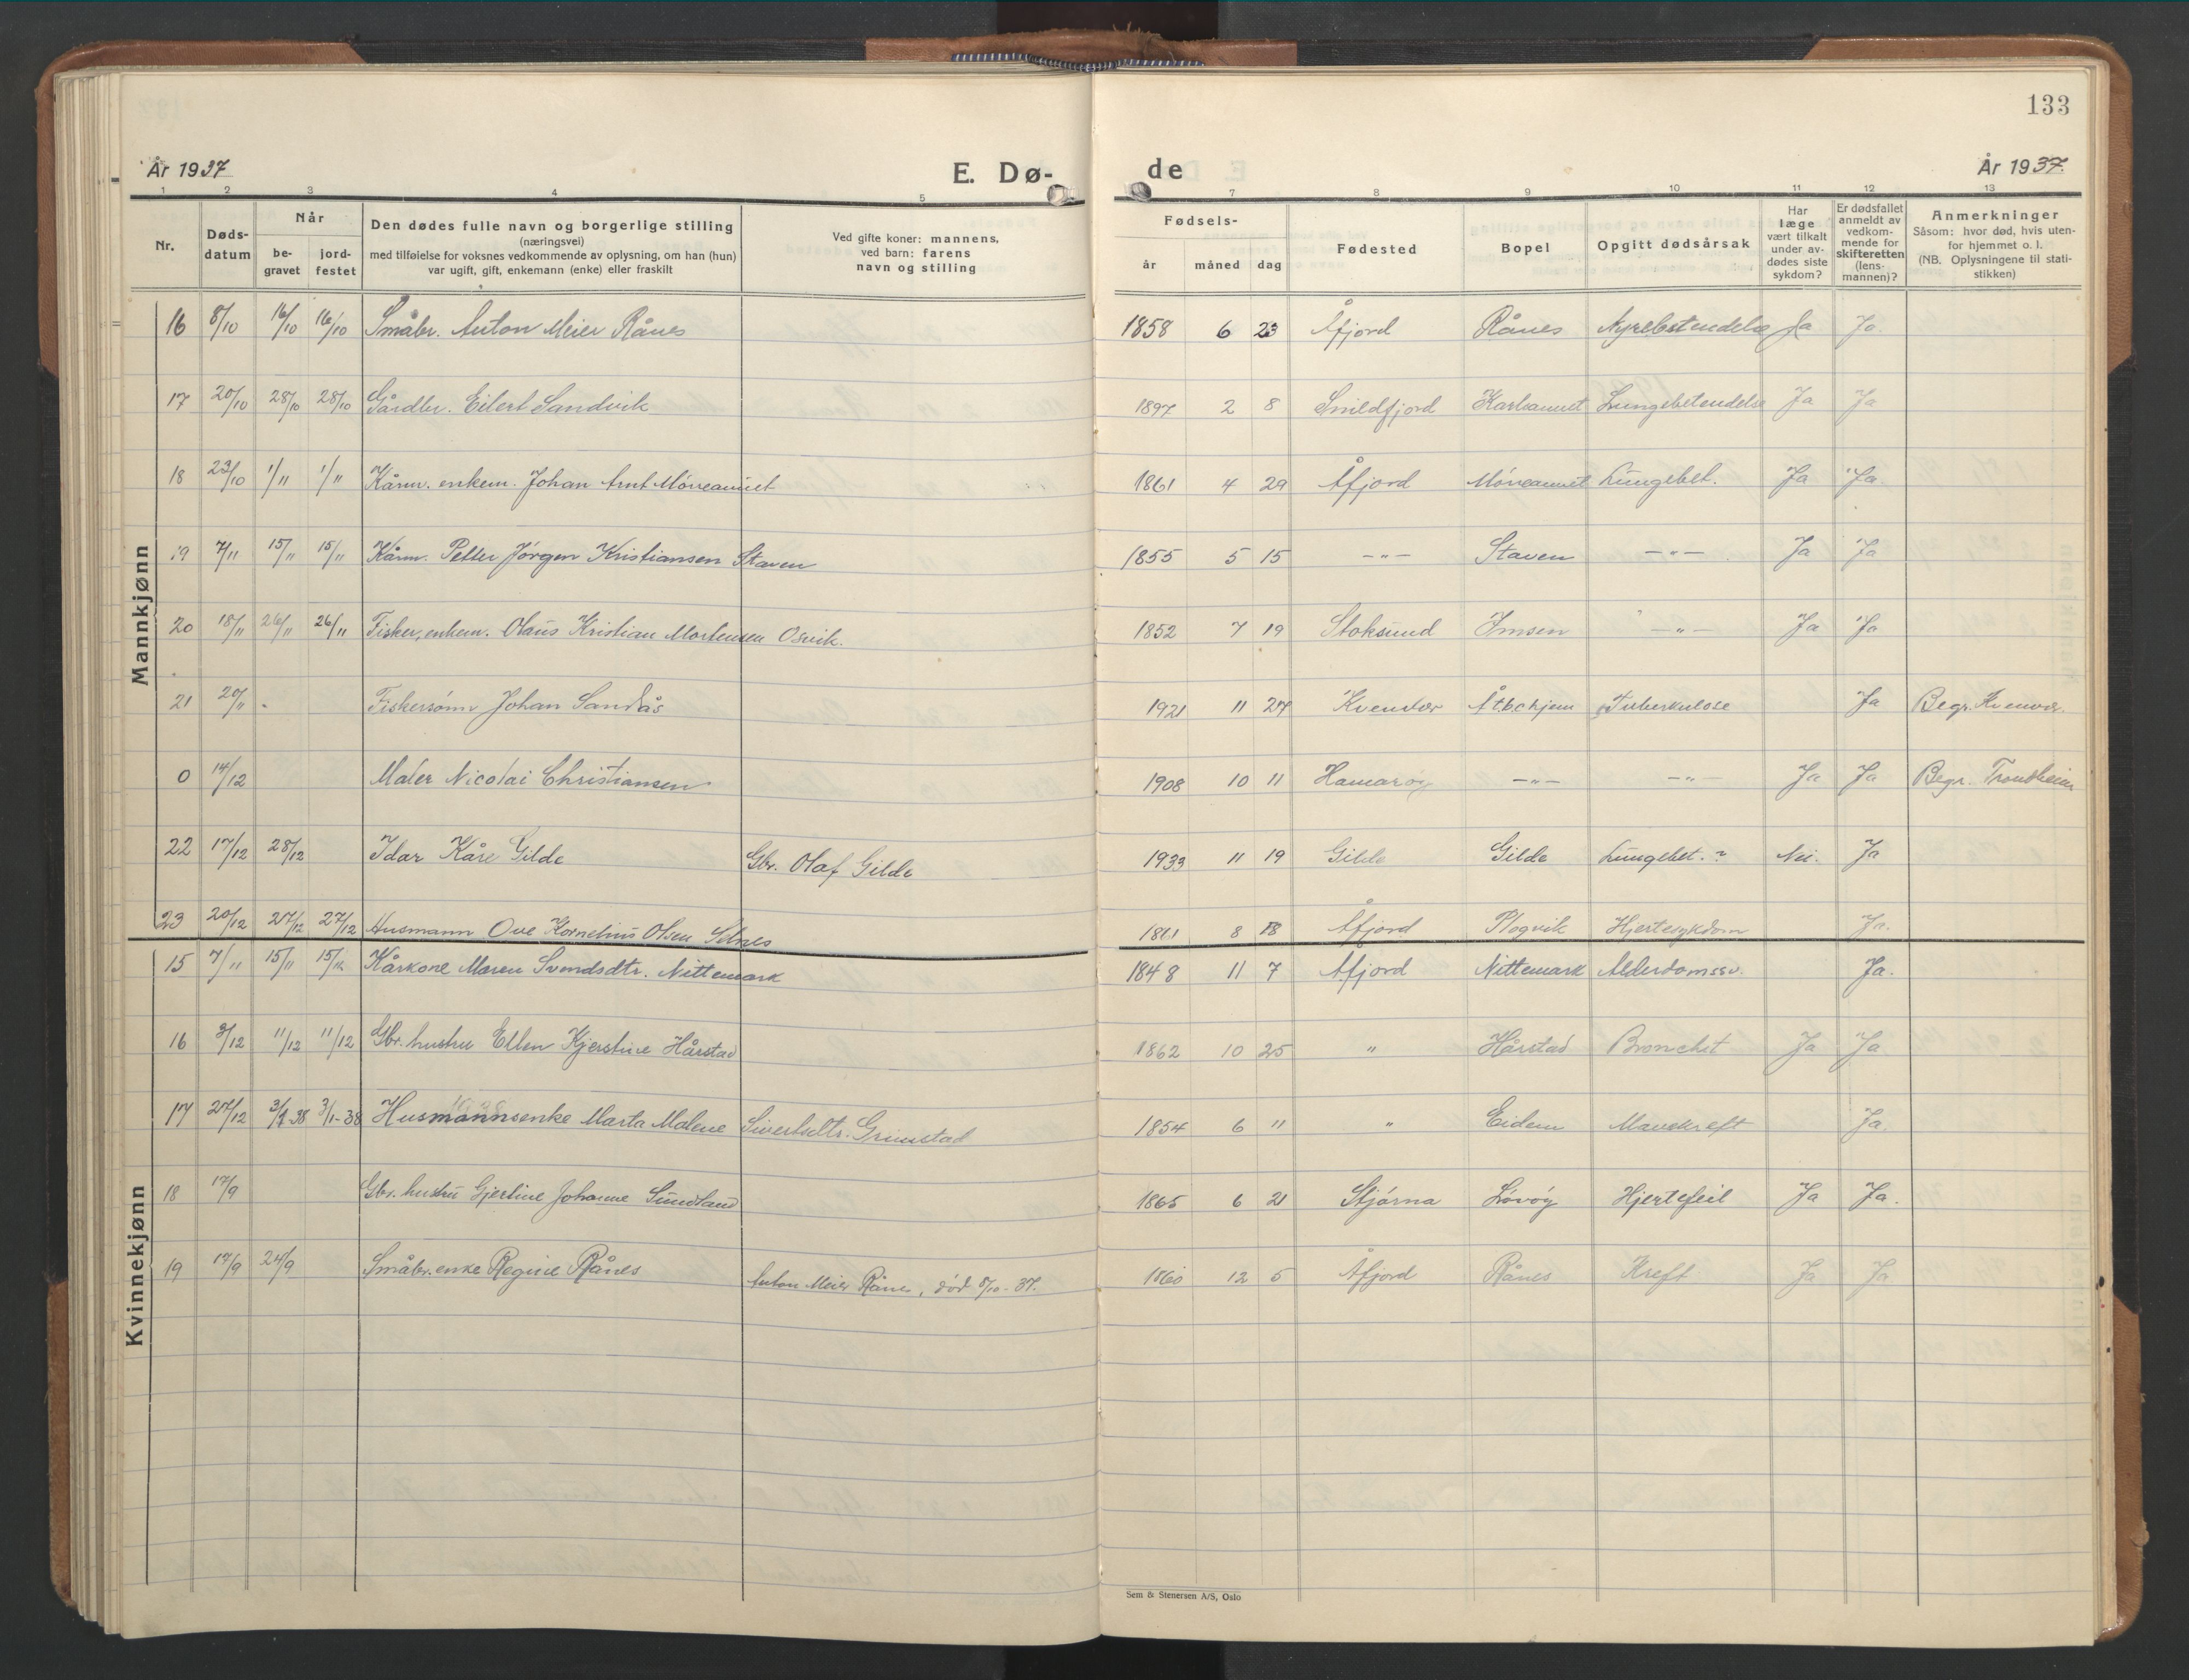 133
År 1937 E. Dø- de År 1937.
1 2 3 4 5 7 8 9 10 11 12 13
Nr. Døds-datum Når be-gravet jord-festet Den dødes fulle navn og borgerlige stilling (næringsvei) med tilføielse for voksnes vedkommende av oplysning, om han (hun) var ugift, gift, enkemann (enke) eller fraskilt Ved gifte koner: mannens, ved barn: farens navn og stilling Fødsels- år måned dag Fødested Bopel Opgitt dødsårsak Har læge vært tilkalt under av-dødes siste sykdom? Er dødsfallet anmeldt av vedkom-mende for skifteretten (lens-mannen)? Anmerkninger Såsom: hvor død, hvis uten-for hjemmet o. l. (NB. Oplysningene til stati-stikken)
Mannkjønn
16 8/10 16/10 16/10 Småbr. Anton Meier Rånes 1858 6 23 Åfjord Rånes Nyrebetendelse Ja Ja.
17 20/10 28/10 28/10 Gårdbr. Eilert Sandvik 1897 2 8 Snildfjord Karlsaunet Lungebetendelse Ja Ja
18 23/10 1/11 1/11 Kårm. enkem. Johan Arnt Mørreaunet 1861 4 29 Åfjord Mørreaunet Lungebet. Ja Ja.
19 7/11 15/11 15/11 Kårm. Petter Jørgen Kristiansen Staven 1855 5 15 -"- Staven -"- Ja Ja
20 18/11 26/11 26/11 Fisker, enkem. Olaus Kristian Mortensen Osvik. 1852 7 19 Stoksund Imsen -"- Ja Ja
21 20/11 - Fiskersønn Johan Sandås 1921 11 27 Kvenvær Å tbc hjem Tuberkulose Ja Begr. Kvenvær.
0 14/12 Maler Nicolai Christiansen 1908 10 11 Hamarøy -"- -"- Ja Ja Begr. Trondheim
22 17/12 28/12 Idar Kåre Gilde Gbr. Olaf Gilde 1933 11 19 Gilde Gilde Lungebet. ? Nei. Ja
23 20/12 27/12 27/12 Husmann Ove Kornelius Olsen Selnes 1861 8 18 Åfjord Plogvik Hjertesykdom Ja.
Kvinnekjønn
15 7/11 15/11 15/12 Kårkone Maren Svendsdtr. Nittemark 1848 11 7 Åfjord Nittemark Alderdomssv. Ja.
16 3/12 11/12 11/12 Gbr. hustru Ellen Kjerstine Hårstad 1862 10 25 " Hårstad Bronchit Ja Ja
17 27/12 3/1-38 3/1-38 Husmannsenke Marta Malene Sivertsdtr. Grimstad 1854 6 11 " Eidem Mavekreft Ja.
18 17/9 Gbr. hustru Gjertine Johanne Sundland 1865 6 21 Stjørna Løvøy Hjertefeil Ja Ja.
19 17/9 24/9 Småbr. enke Regine Rånes Anton Meier Rånes, død 8/10-37. 1860 12 5 Åfjord Rånes Kreft Ja Ja
Sem & Stenersen A/S, Oslo